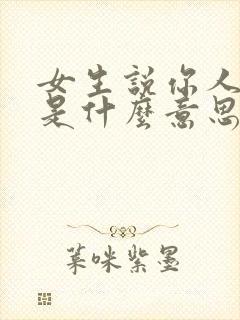 女生說你人
是什麼意思
葉咪紫墨